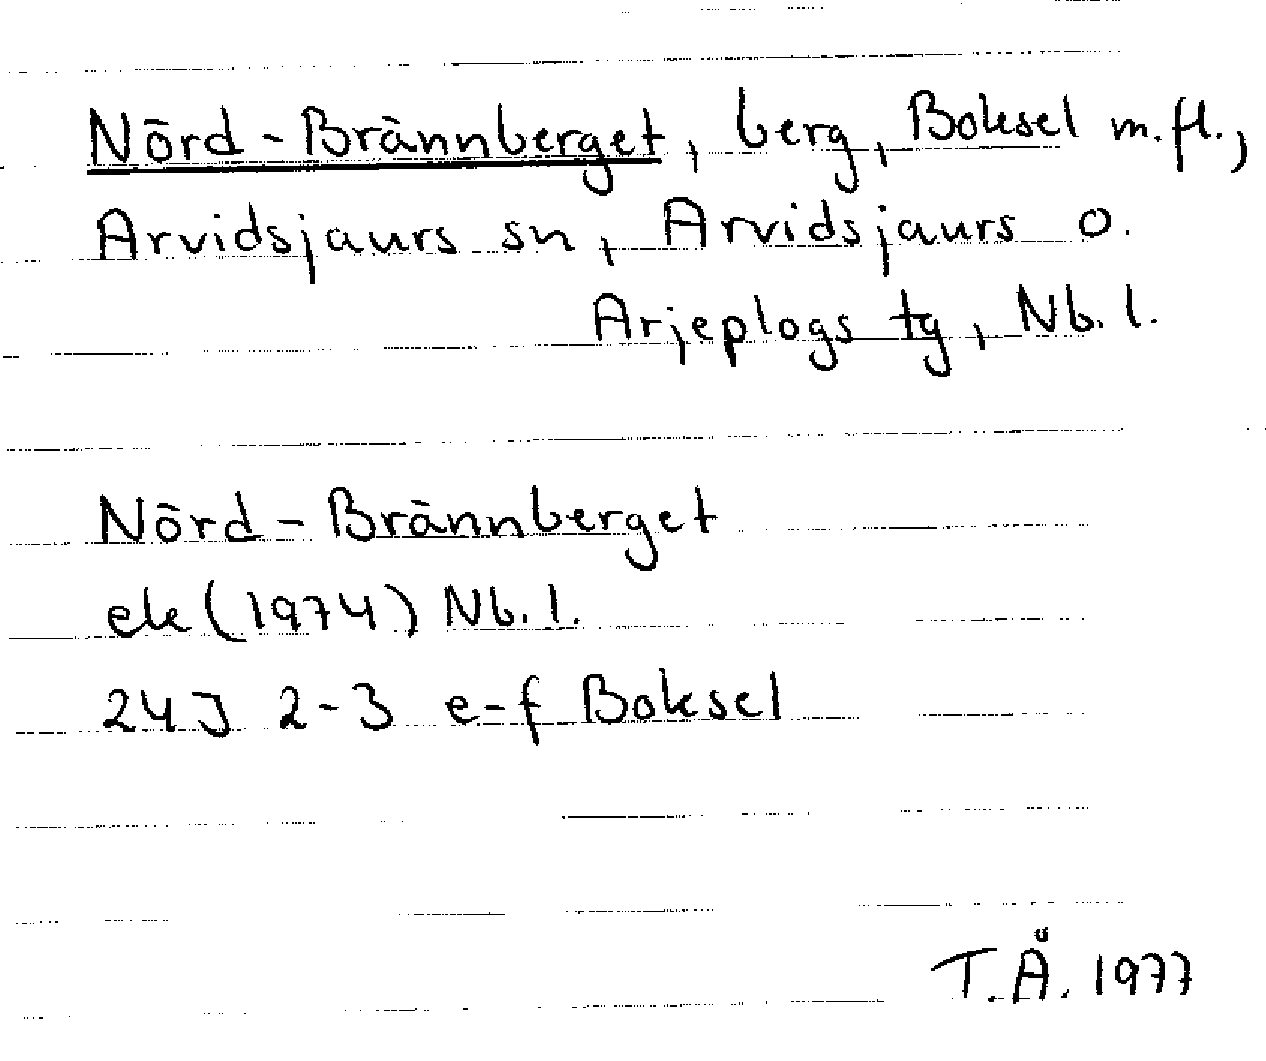 Nörd-Brännberget, berg, Boksel m.fl.,
Arvidsjaurs sn, Arvidsjaurs o.
Arjeplogs tg, Nb. l.
Nörd-Brännberget
ek (1974) Nb. l.
24J 2-3 e-f Boksel
T.Å. 1977